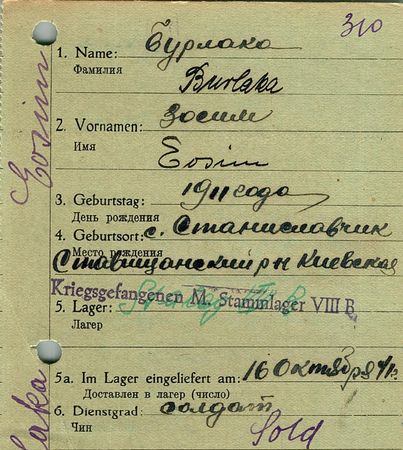 310
1. Name: Бурлака
Фамилия
Burlaka
2. Vornamen: Зосим
Имя
Eosim
3. Geburtstag: 1911 года
День рождения
4. Geburtsort: с. Станиславчик
Место рождения
Ставищанский р-н Киевская
Kriegsgefangenen M. Stammlager VIII B
5. Lager: Stalag
Лагерь
5a. Im Lager eingeliefert am: 16 Октября 41г.
Доставлен в лагерь (число)
6. Dienstgrad: солдат
Чин
Sold
Eosim
laka